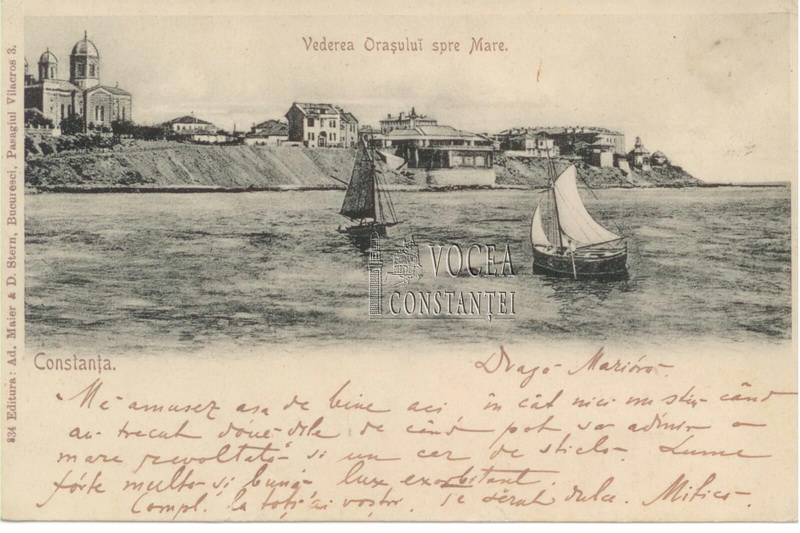 Vederea Oraşuluĭ spre Mare.
834 Editura: Ad. Maier & D. Stern, Bucuresci, Pasagiul Vilacros 3.
VOCEA
CONSTANŢEI
Constanţa.
Dragă Marióră.
Mĕ amusez aşa de bine aci în cât nici nu ştiŭ când
au trecut doŭe dile de când pot să admir o
mare revoltată şi un cer de sticlă. Lume
fórte multă şi bună lux exorbitant.
Compl. la toţi ai voştri. Te sărut dulce. Mitică.